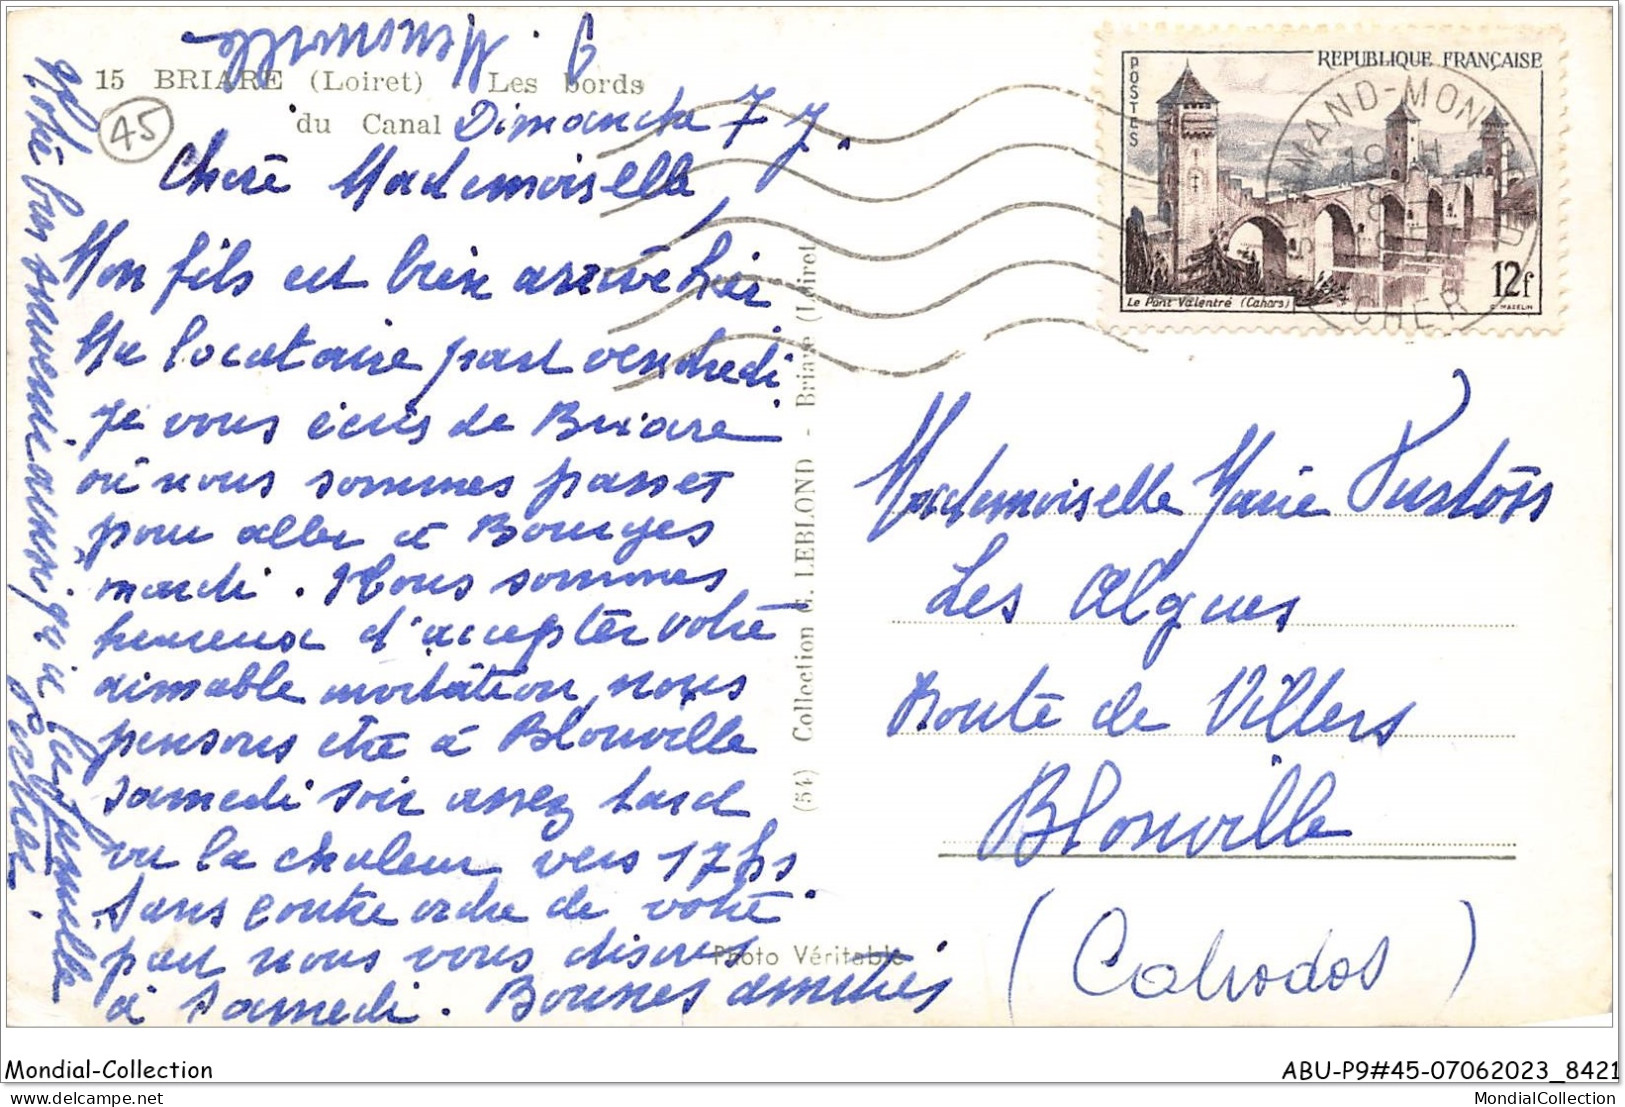 15 BRIARE (Loiret) Les bords
du Canal
45
Dimanche 7 7.
Chère Mademoiselle
Mon fils est bien arrivé hier
Ma locataire part vendredi
je vous écris de Briare
où nous sommes passer
pour aller à Bourges
mardi. Nous sommes
heureux d'accepter votre
aimable invitation, nous
pensons être à Blonville
samedi soir assez tard
vu la chaleur vers 17 hs.
Sans contre ordre de votre
part nous vous disons
à samedi. Bonnes amitiés
Votre bon souvenir aussi qu'à
(54) Collection G. LEBLOND - Briare (Loiret
Photo Véritable
POSTES
REPUBLIQUE FRANÇAISE
Le Pont Valentré (Cahors)
12f
MAND-MON
CHER
Mademoiselle Marie
Les Algues
Route de Villers
Blonville
(Calvados)
Mondial-Collection
ABU-P9#45-07062023_8421
delcampe.net
MondialCollection